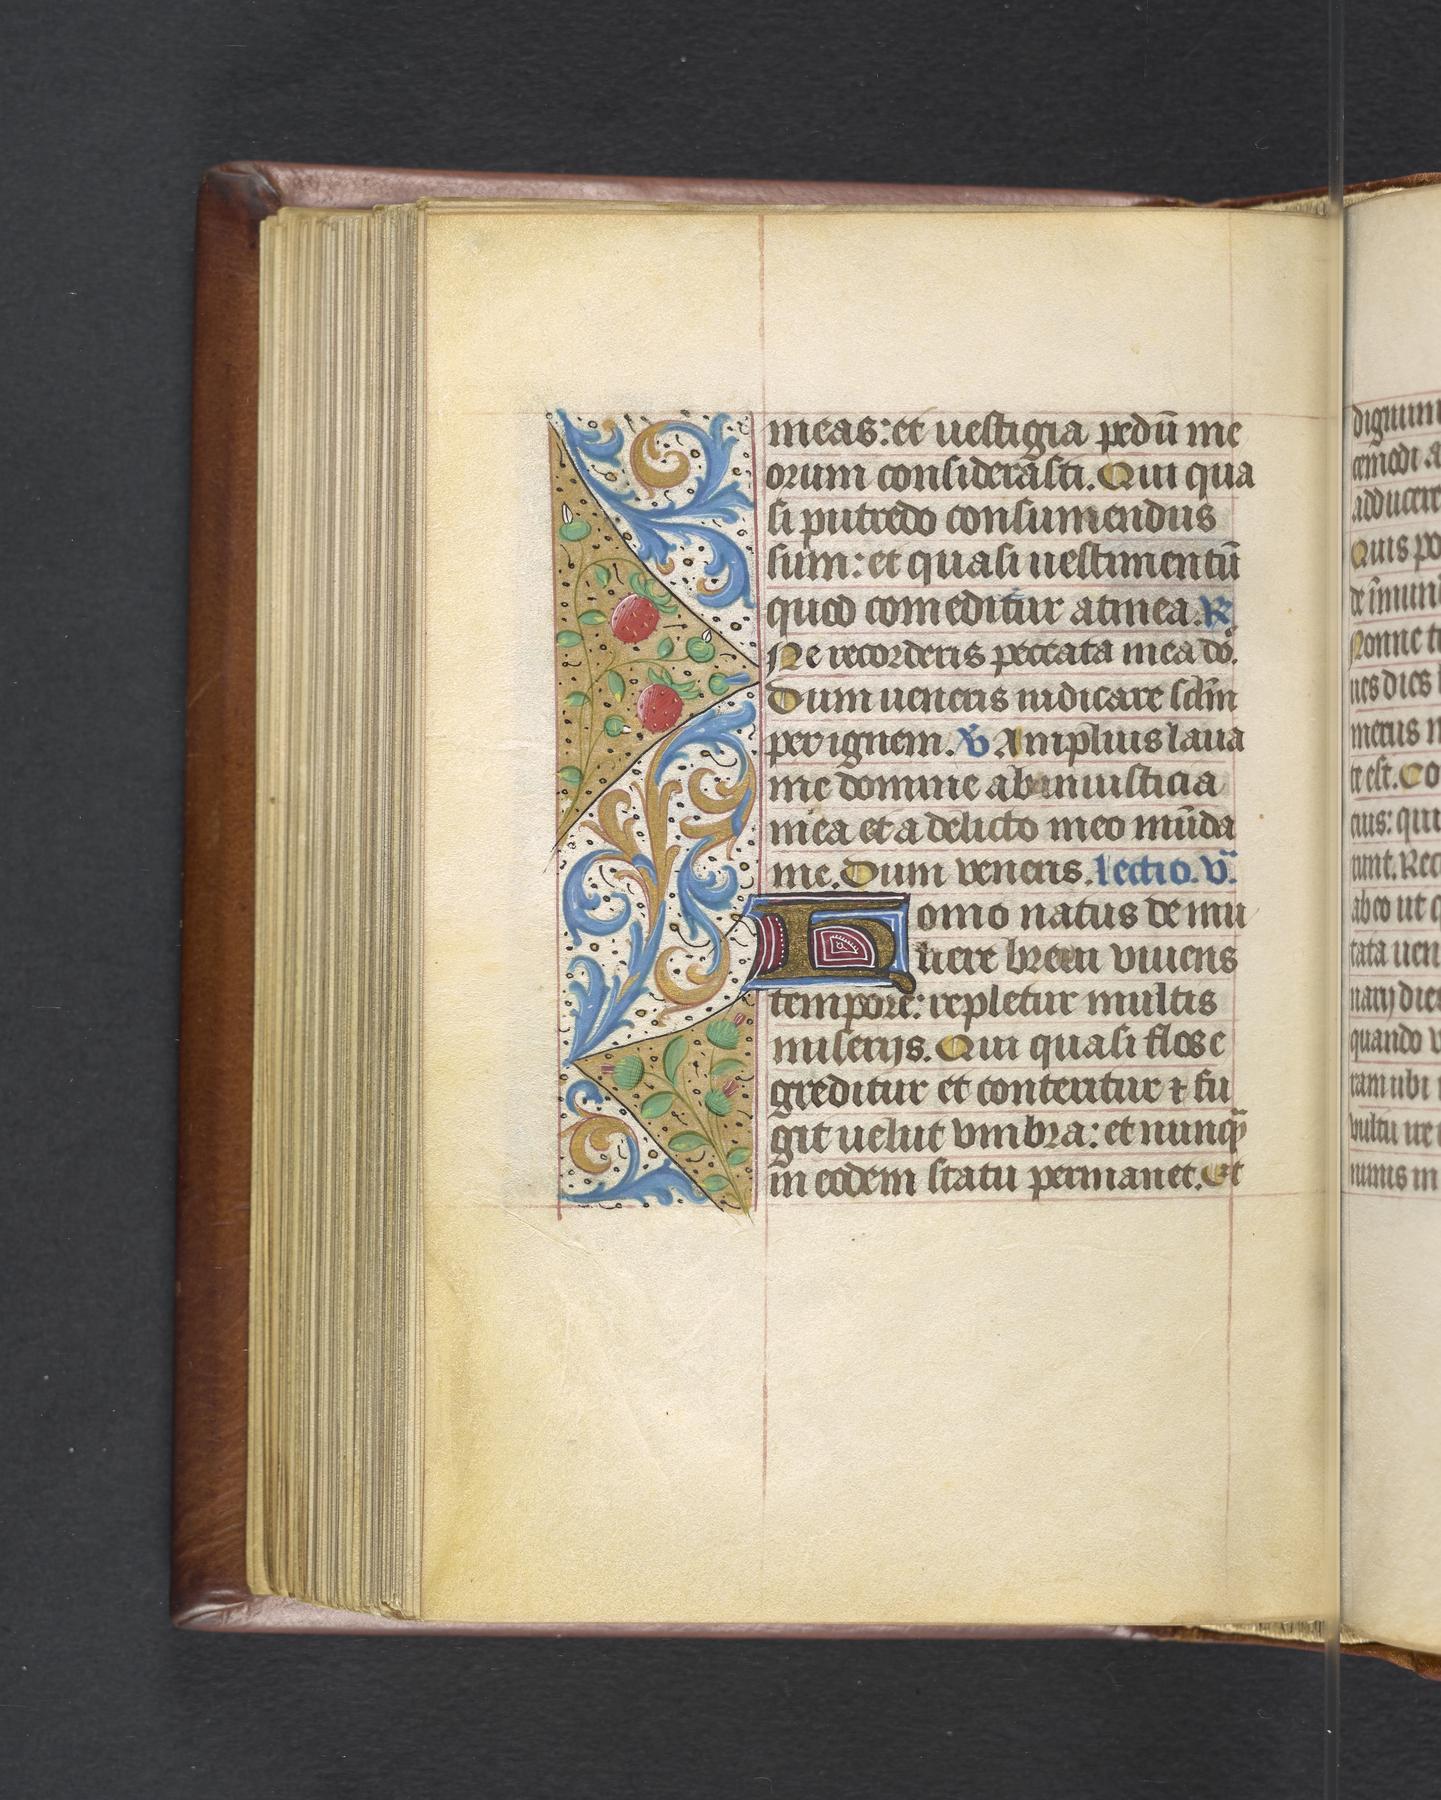 meas: et uestigia pedū me
orum considerasti. Qui qua
si putredo consumendus
sum: et quasi uestimentū
quod comeditur a tinea. R
Ne recorderis peccata mea dō.
Dum ueneris iudicare sclm̄
per ignem. V̄ Amplius laua
me domine ab iniusticia
mea et a delicto meo mūda
me. Dum veneris. lectio. v.
Homo natus de mu
liere breui viuens
tempore: repletur multis
miserijs. Qui quasi flos e
greditur et conteritur ⁊ fu
git uelut vmbra: et nunq̄
in eodem statu permanet. Et
dignum
cemodi a
adducere
Quis po
de īmun
Nonne tu
ues dies
mensium
te est. Co
eius: qui
runt. Rec
ab eo ut
tata ueni
narij dies
quando
ram ubi
vultu
nimis in